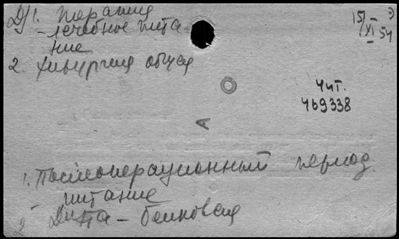 Д) 1. Терапия 15/XI 54 Э
- лечебное пита
ние
2. Хирургия общая
Чит.
469338
А
1. Послеоперационный период
- питание
2 Диета - белковая